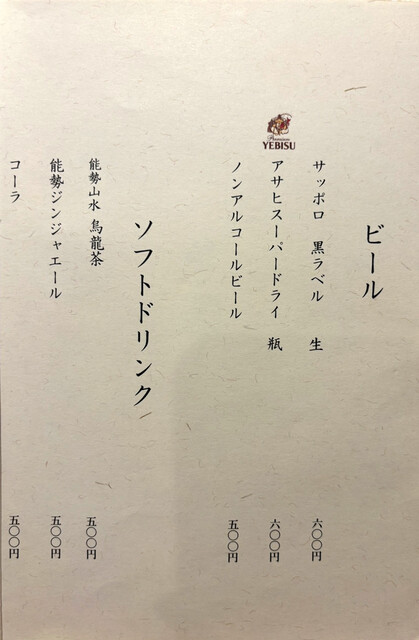 ビール
サッポロ 黒ラベル 生 六〇〇円
Premium
YEBISU
アサヒスーパードライ 瓶 六〇〇円
ノンアルコールビール 五〇〇円
ソフトドリンク
能勢山水 烏龍茶 五〇〇円
能勢ジンジャエール 五〇〇円
コーラ 五〇〇円